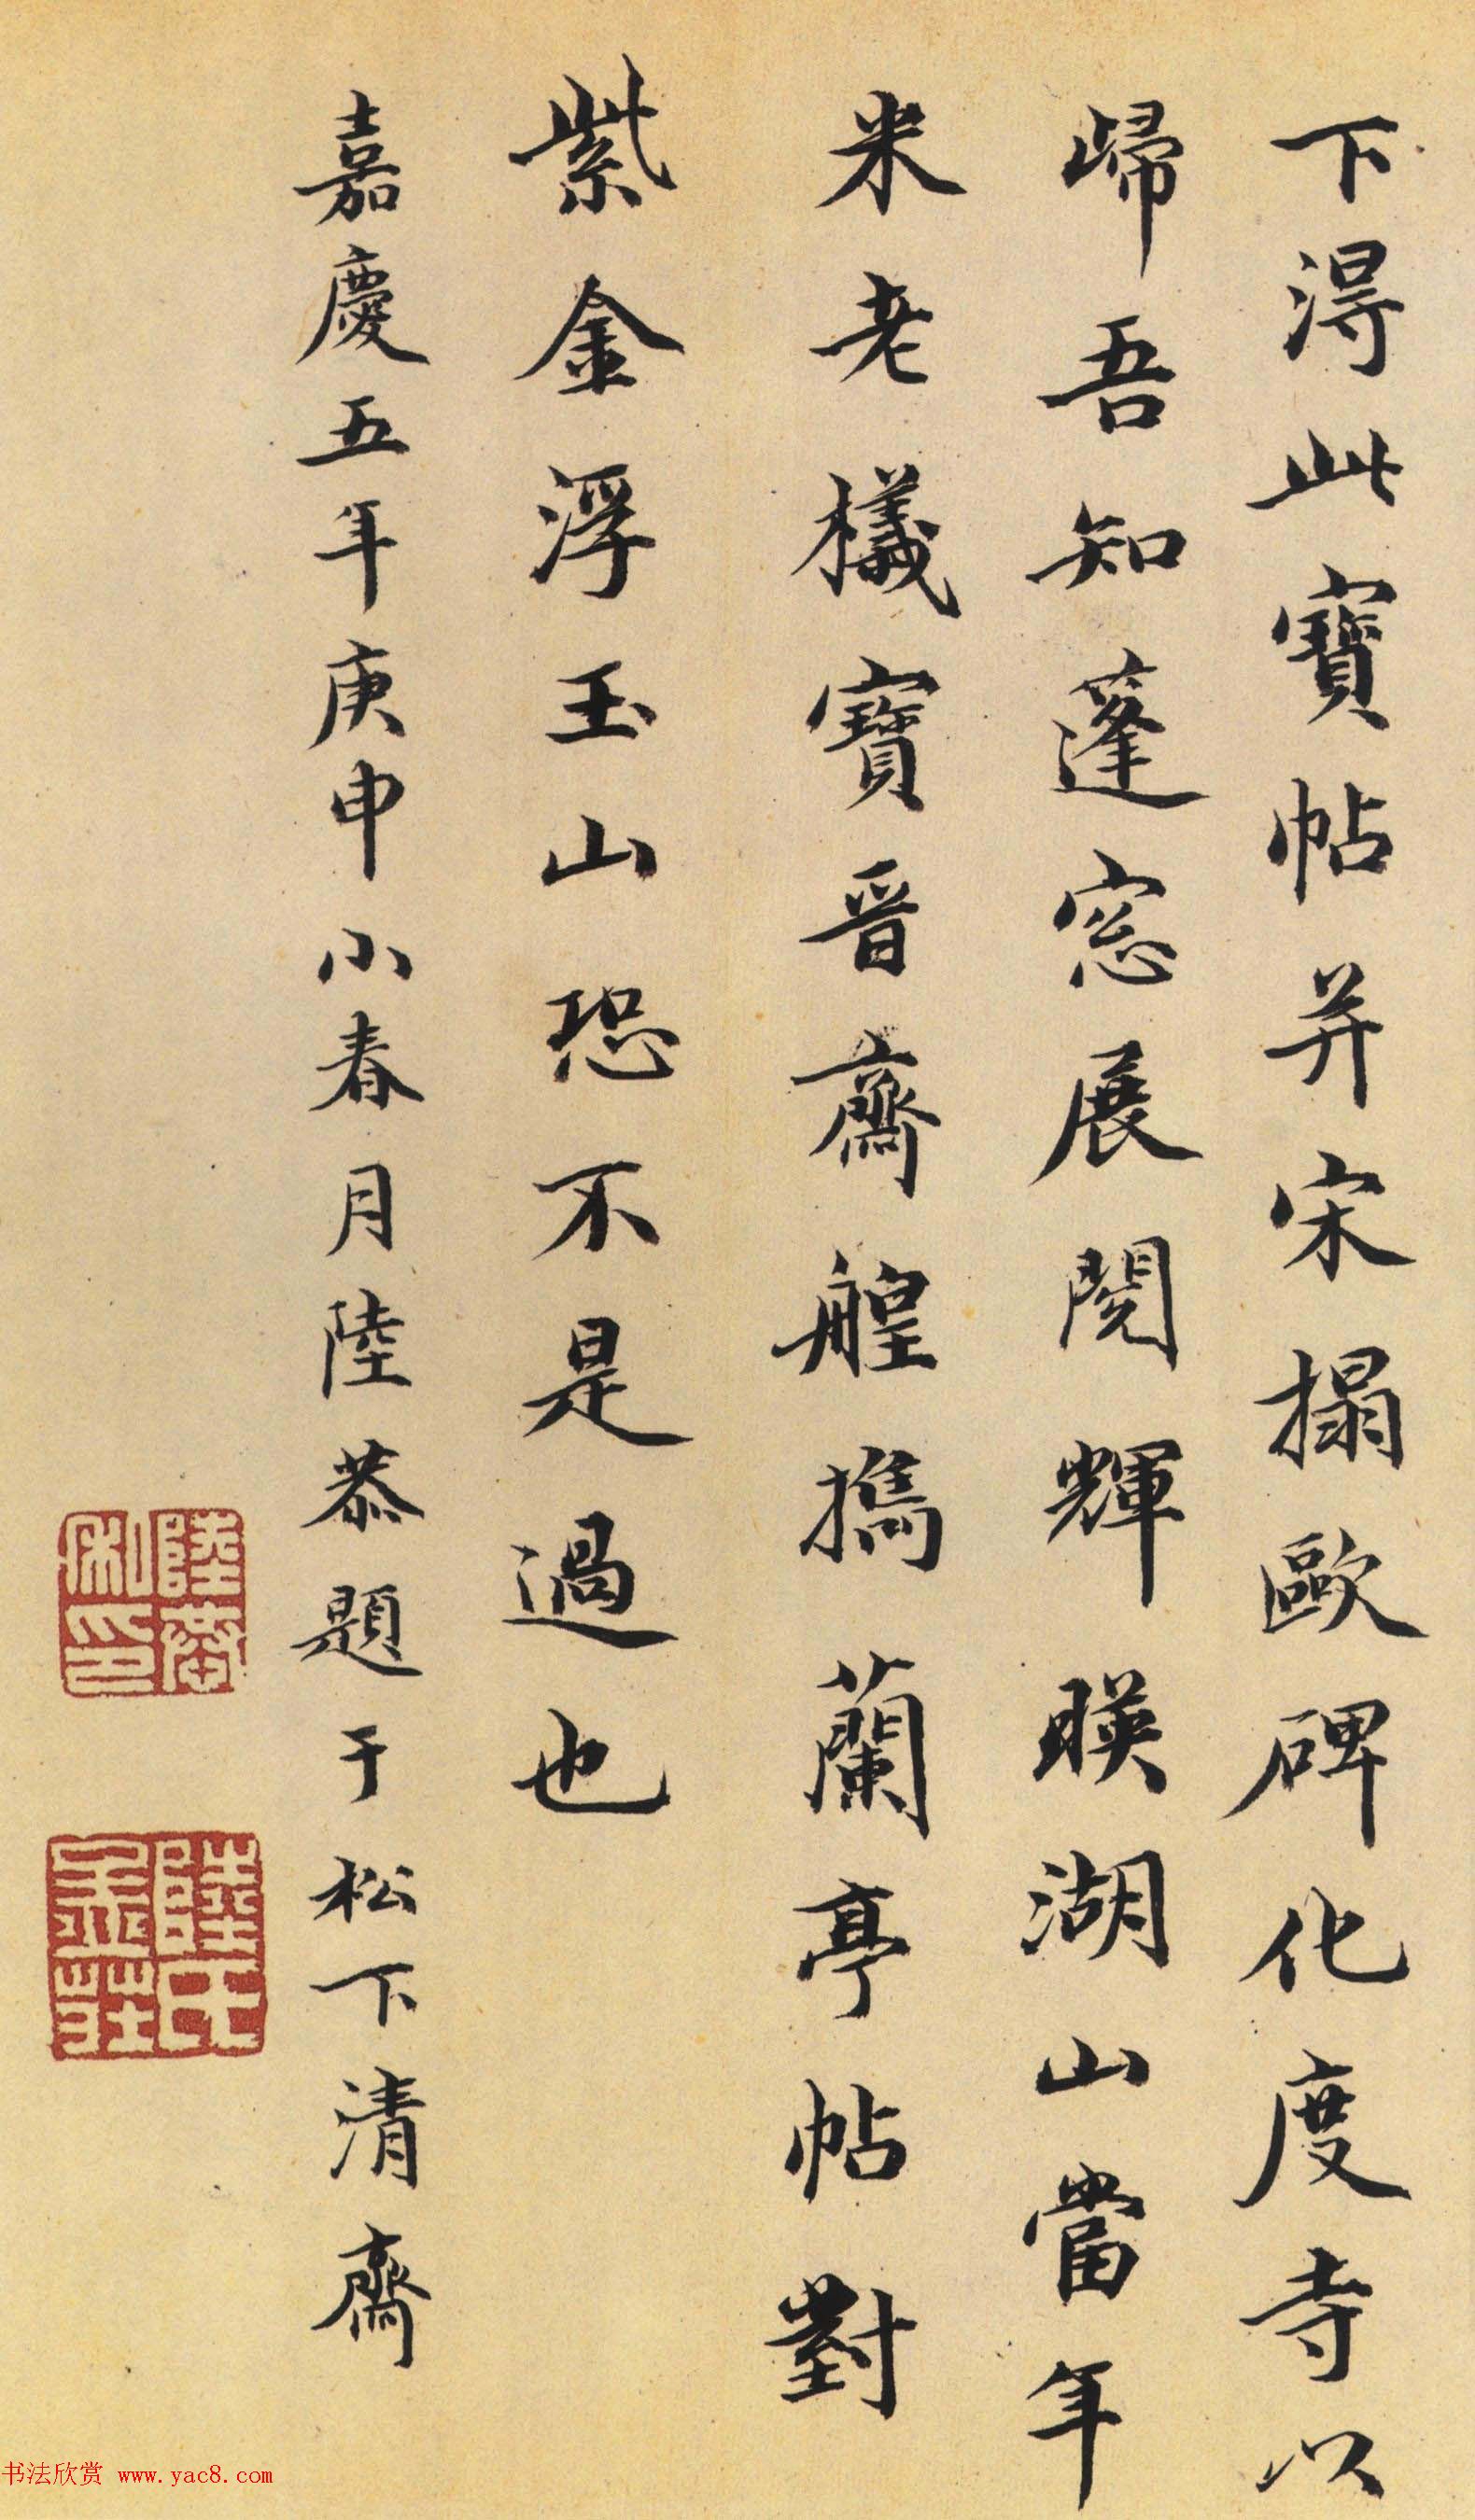 下得此寶帖并宋搨歐碑化度寺以
歸吾知蓬窓展閱輝暎湖山當年
米老檥寶晋齋艎攜蘭亭帖對
紫金浮玉山恐不是過也
嘉慶五年庚申小春月陸恭題于松下清齋
陸恭私印
书法欣赏 www.yac8.com